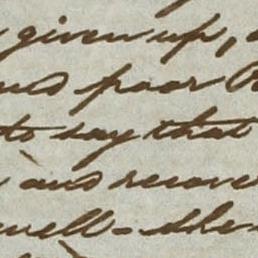 given up,
and poor
to say that
and recove
well - she